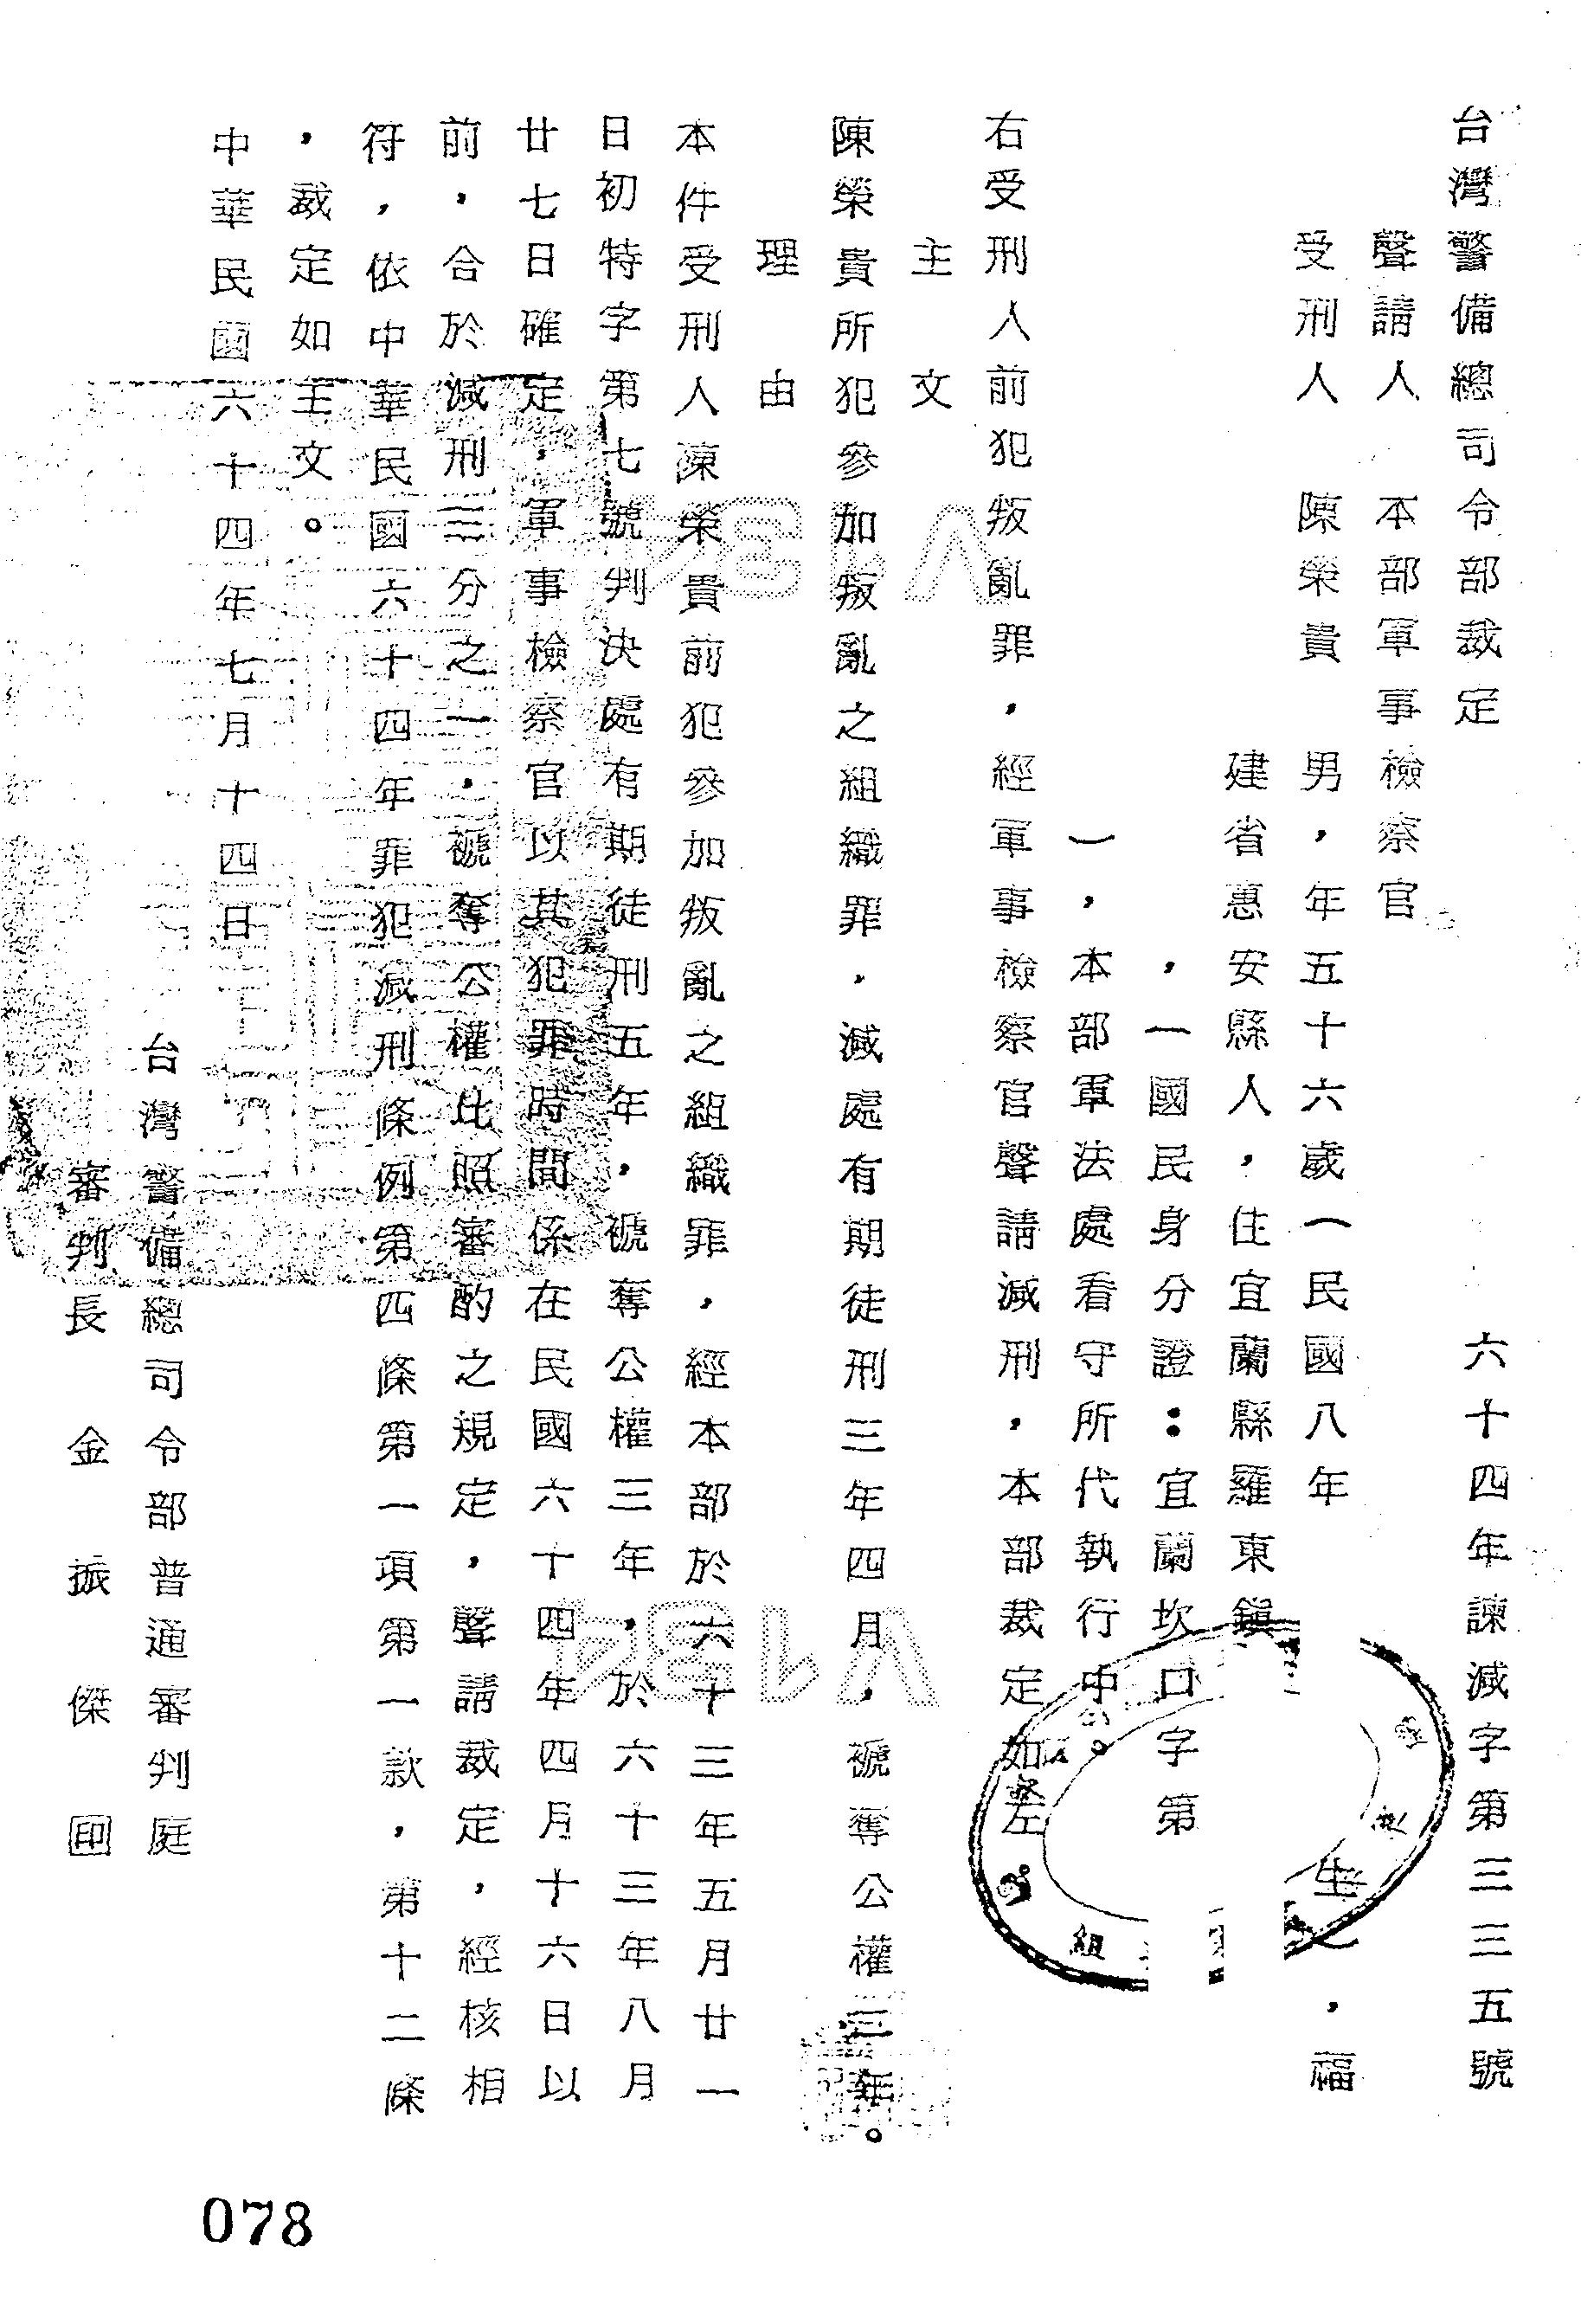 台灣警備總司令部裁定
六十四年諫減字第三三五號
聲請人 本部軍事檢察官
受刑人 陳榮貴 男，年五十六歲（民國八年 生，福
建省惠安縣人，住宜蘭縣羅東鎮
，一國民身分證：宜蘭坎口字第
），本部軍法處看守所代執行中。
右受刑人前犯叛亂罪，經軍事檢察官聲請減刑，本部裁定如左
主文
陳榮貴所犯參加叛亂之組織罪，減處有期徒刑三年四月，褫奪公權三年。
理由
本件受刑人陳榮貴前犯參加叛亂之組織罪，經本部於六十三年五月廿一
日初特字第七號判決處有期徒刑五年，褫奪公權三年，於六十三年八月
廿七日確定，軍事檢察官以其犯罪時間係在民國六十四年四月十六日以
前，合於減刑三分之一，褫奪公權比照審酌之規定，聲請裁定，經核相
符，依中華民國六十四年罪犯減刑條例第四條第一項第一款，第十二條
，裁定如主文。
中華民國六十四年七月十四日
台灣警備總司令部普通審判庭
審判長 金振傑 印
V134
V134
078